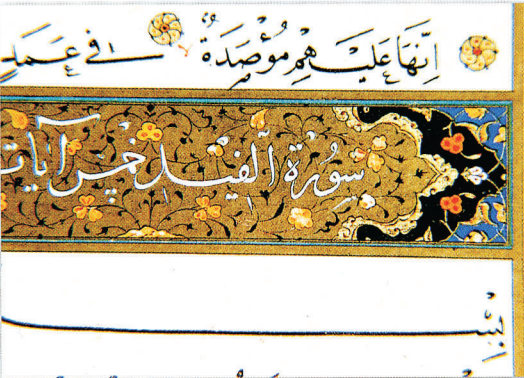 اِنَّهَا عَلَيْهِمْ مُؤْصَدَةٌ فِى عَمَدٍ
سورة الفيل خمس آيات